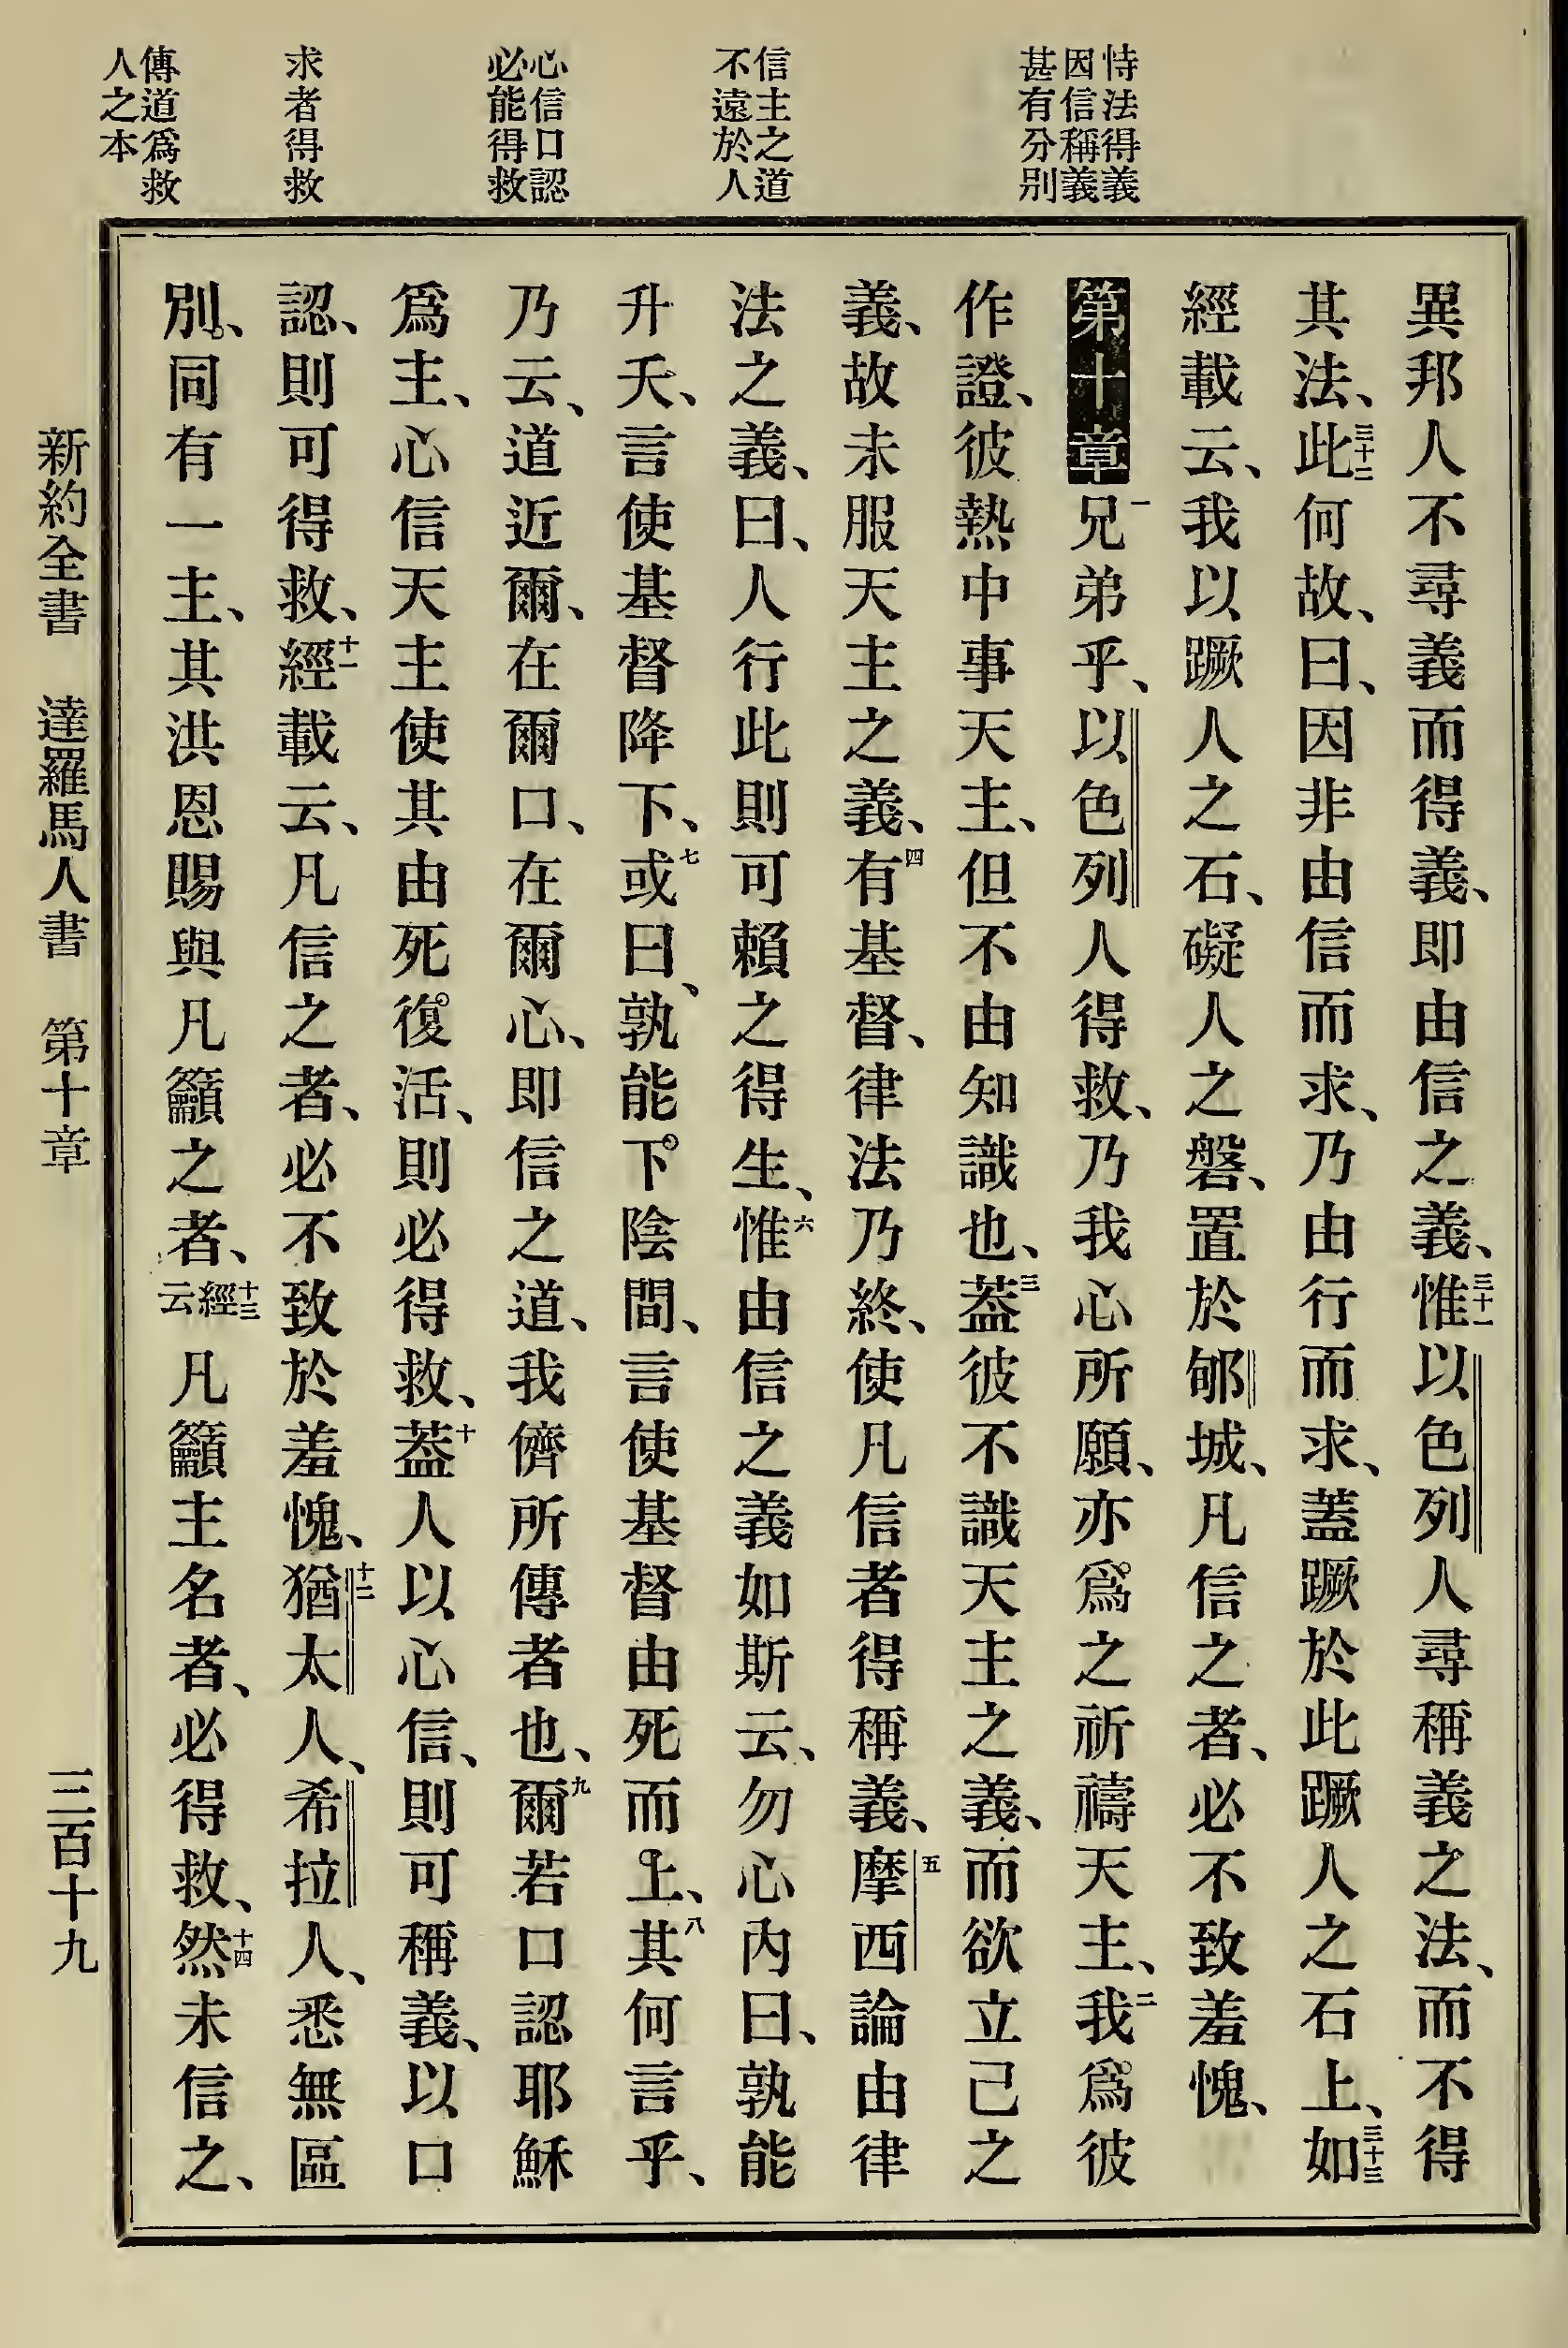 恃法得義
因信稱義
甚有分別
信主之道
不遠於人
心信口認
必能得救
求者得救
傳道爲救
人之本
異邦人不尋義而得義、即由信之義、三十一惟以色列人尋稱義之法、而不得
其法、三十二此何故、曰、因非由信而求、乃由行而求、蓋蹶於此蹶人之石上、三十三如
經載云、我以蹶人之石、礙人之磐、置於郇城、凡信之者、必不致羞愧、
第十章一兄弟乎、以色列人得救、乃我心所願、亦爲之祈禱天主、二我爲彼
作證、彼熱中事天主、但不由知識也、三葢彼不識天主之義、而欲立己之
義、故未服天主之義、四有基督、律法乃終、使凡信者得稱義、五摩西論由律
法之義、曰、人行此則可賴之得生、六惟由信之義如斯云、勿心內曰、孰能
升天、言使基督降下、七或曰、孰能下陰間、言使基督由死而上、八其何言乎、
乃云、道近爾、在爾口、在爾心、即信之道、我儕所傳者也、九爾若口認耶穌
爲主、心信天主使其由死復活、則必得救、十葢人以心信、則可稱義、以口
認、則可得救、十一經載云、凡信之者、必不致於羞愧、十二猶太人、希拉人、悉無區
別、同有一主、其洪恩賜與凡籲之者、十三經云凡籲主名者、必得救、十四然未信之、
新約全書　達羅馬人書　第十章　三百十九